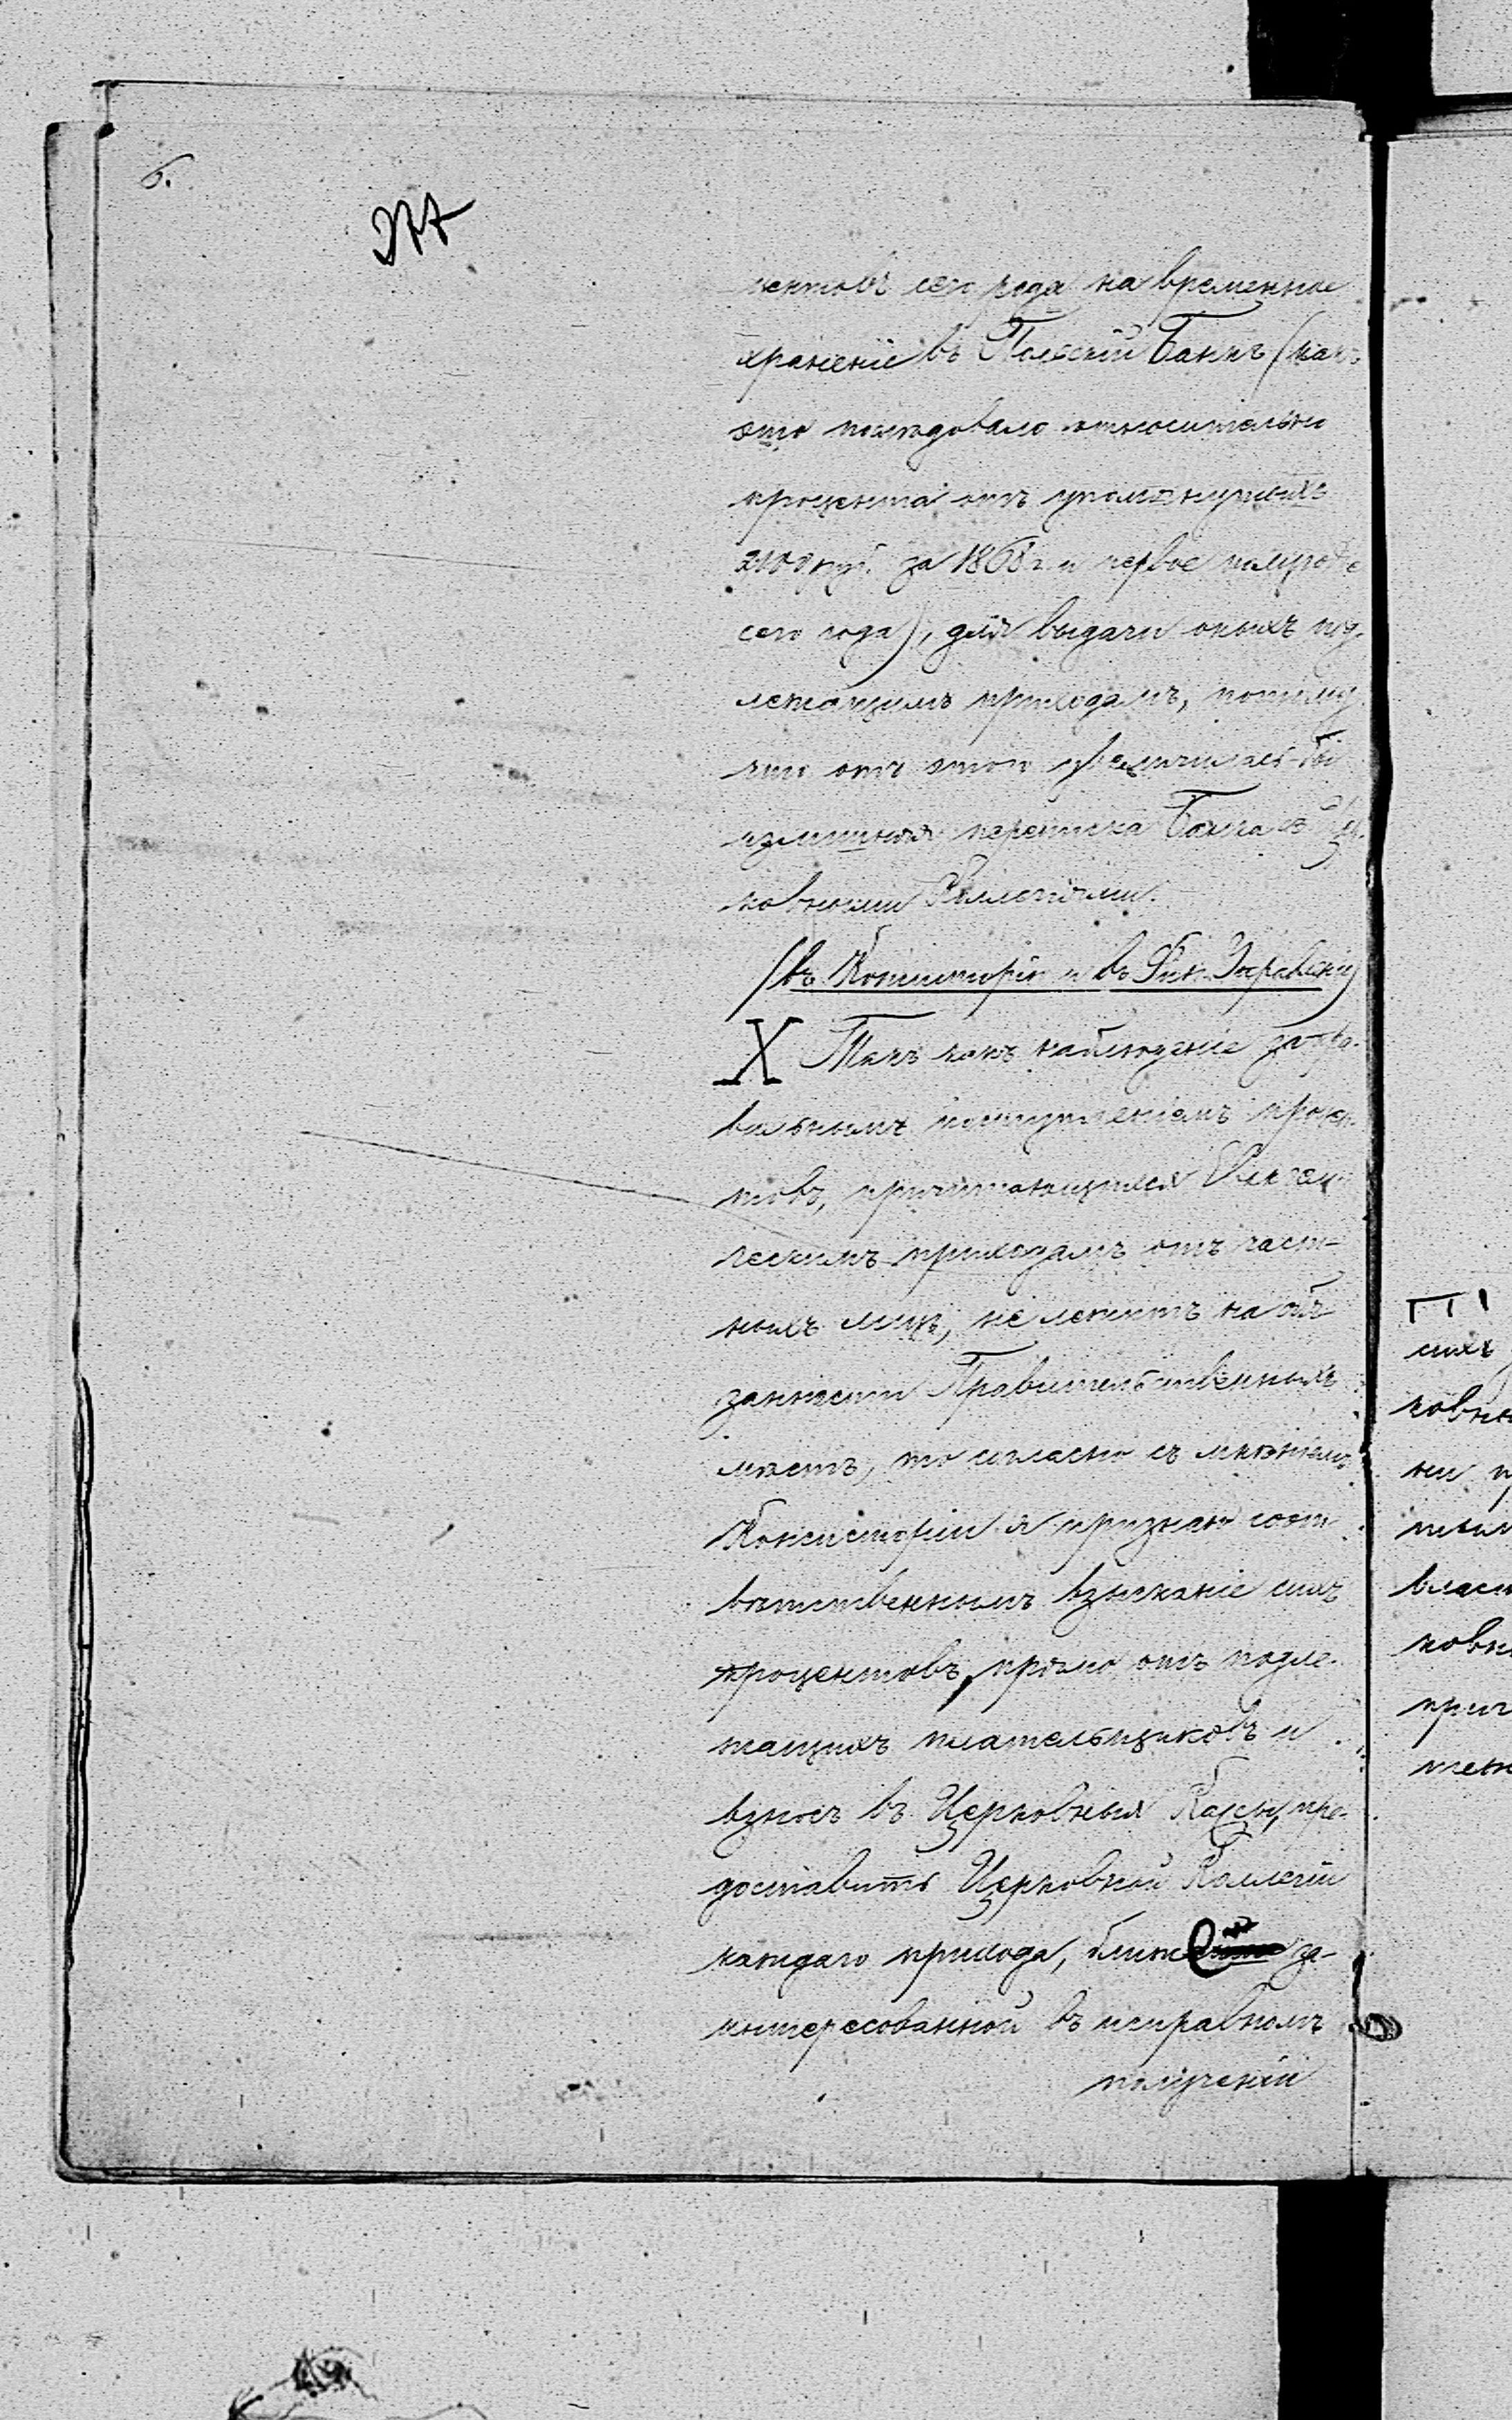 6.
277
центовъ сего рода на временное
храненіе въ Польскій Банкъ (какъ
это послѣдовало относительно
процента отъ упомянутыхъ
2100 руб. за 1868 г. и первое полугодіе
сего года), для выдачи оныхъ под-
лежащимъ приходамъ, потому
что отъ этого увеличилась-бы
излишняя переписка Банка съ Цер-
ковными Коллегіями.
(въ Консисторію и въ Фин. Управленіе)
X Такъ какъ наблюденіе за пра-
вильнымъ поступленіемъ процен-
товъ, причитающихся Евангели-
ческимъ приходамъ отъ част-
ныхъ лицъ, не лежитъ на обя-
занности Правительственныхъ
мѣстъ, то согласно съ мнѣніемъ
Консисторіи я признаю соот-
вѣтственнымъ взысканіе сихъ
процентовъ, прямо отъ подле-
жащихъ плательщиковъ и
взносъ въ Церковныя Кассы, пре-
доставить Церковной Коллегіи
каждаго прихода, ближе за-
интересованной въ исправномъ
полученіи
сихъ
ковны
ни
власт
ковн
прич